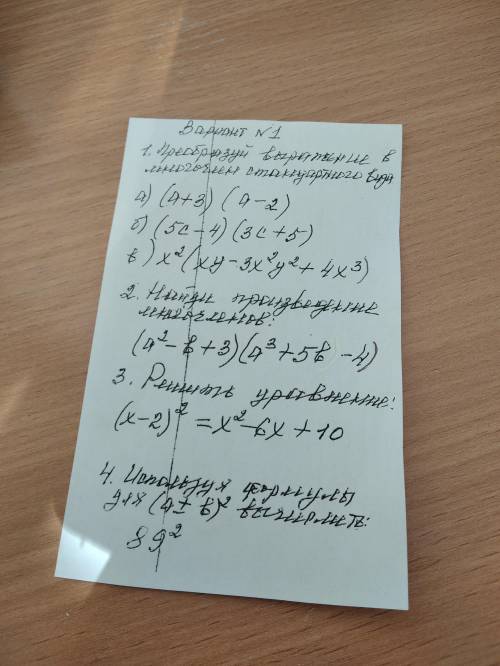 Вариант №1
1. Преобразуй выражение в
многочлен стандартного вида
а) (a+3) (a-2)
б) (5c-4) (3c+5)
в) x²(xy-3x²y²+4x³)
2. Найди произведение
многочленов:
(a²-b+3)(a³+5b-4)
3. Решить уравнение:
(x-2)²=x²-6x+10
4. Используя формулы
для (a±b)² вычислить:
89²